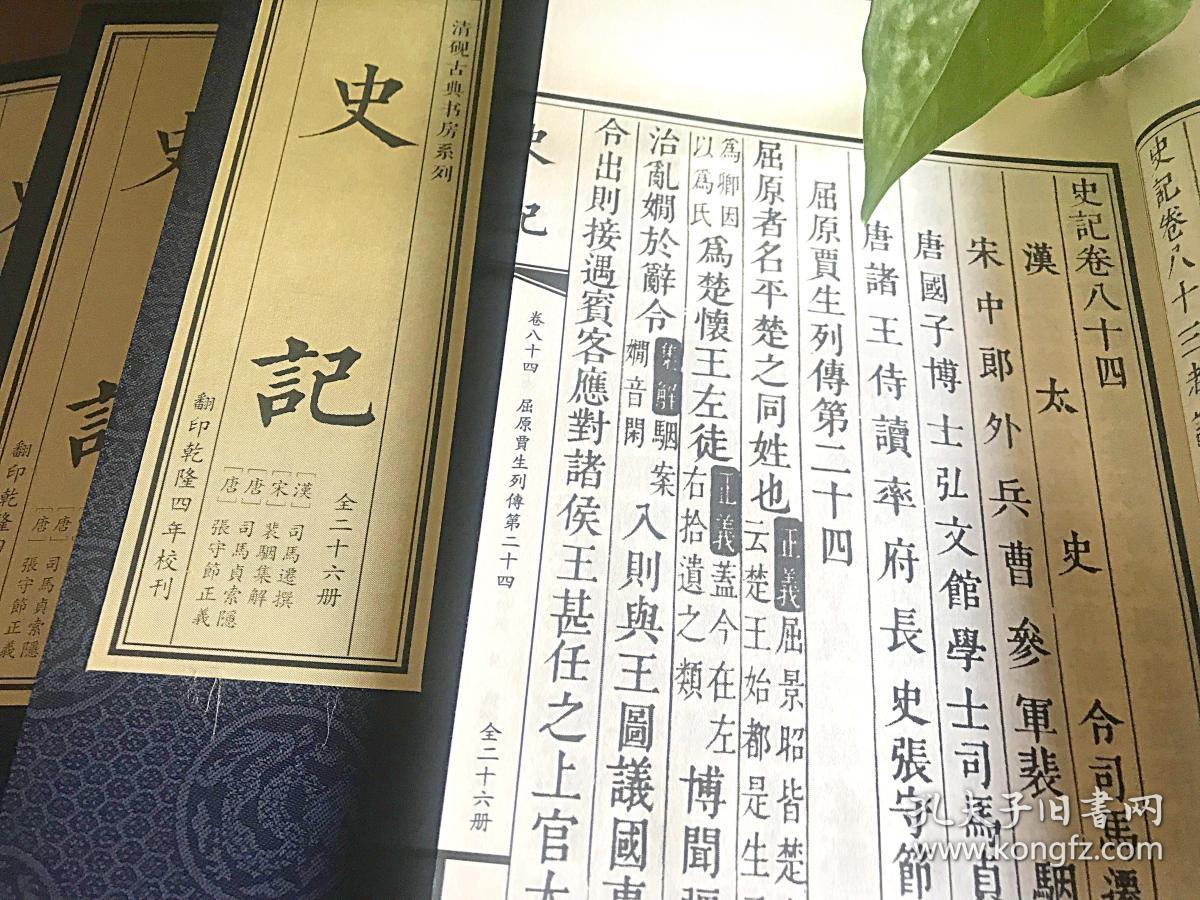 史記卷八十四
漢 太 史 令 司 馬 遷
宋中郎外兵曹參軍裴駰
唐國子博士弘文館學士司馬貞
唐諸王侍讀率府長史張守節
屈原賈生列傳第二十四
屈原者名平楚之同姓也正義屈景昭皆楚
云楚王始都是生
為卿因
以為氏為楚懷王左徒正義蓋今在左
右拾遺之類博聞
治亂嫺於辭令集解駰案
嫺音閑入則與王圖議國事
令出則接遇賓客應對諸侯王甚任之上官大
卷八十四 屈原賈生列傳第二十四 全二十六册
史記卷八十三
清砚古典书房系列
史記
全二十六册
[漢]司馬遷撰
[宋]裴駰集解
[唐]司馬貞索隱
[唐]張守節正義
翻印乾隆四年校刊
史記
[唐]司馬貞索隱
[唐]張守節正義
翻印乾隆四
史
孔夫子旧书网
www.kongfz.com